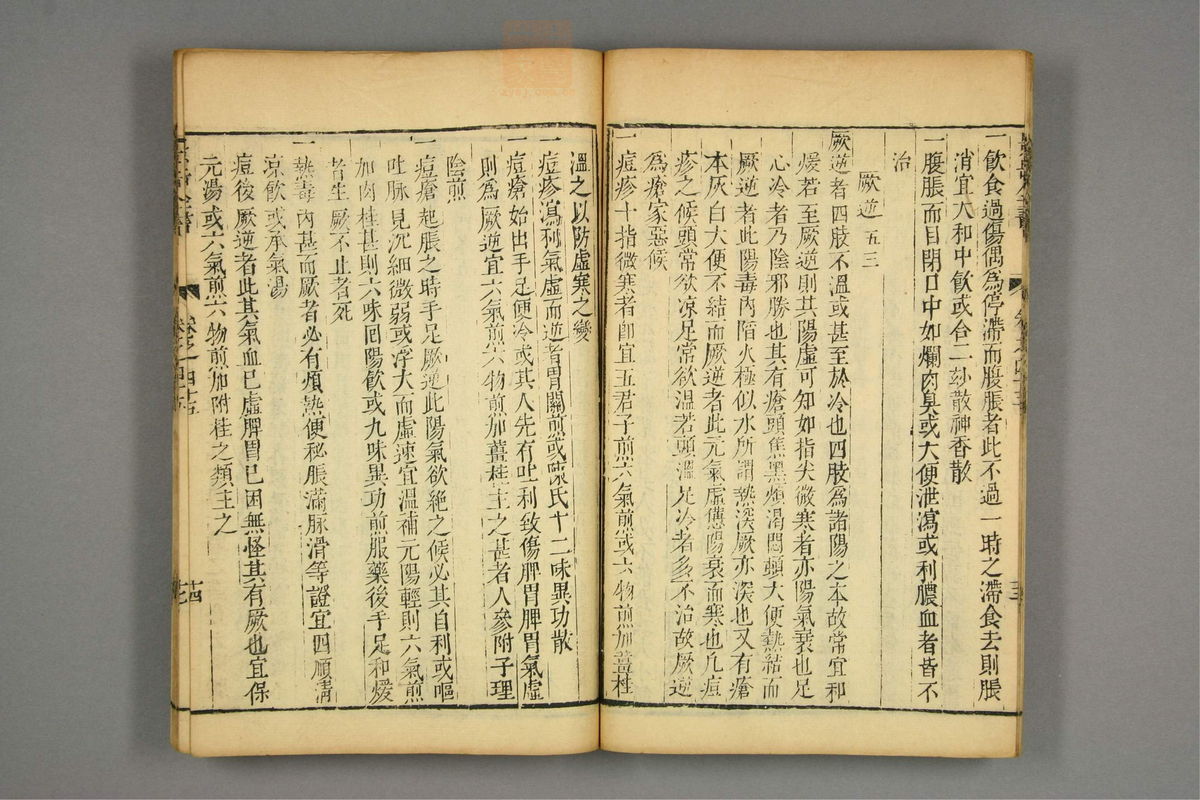 一飲食過傷偶為停滯而腹脹者此不過一時之滯食去則脹
消宜大和中飲或合二玅散神香散
一腹脹而目閉口中如爛肉臭或大便泄瀉或利膿血者皆不
治
厥逆 五三
厥逆者四肢不溫或甚至於冷也四肢為諸陽之本故常宜和
煖若至厥逆則其陽虛可知如指尖微寒者亦陽氣衰也足
心冷者乃陰邪勝也其有瘡頭焦黑煩渴悶頓大便熱結而
厥逆者此陽毒內陷火極似水所謂熱深厥亦深也又有瘡
本灰白大便不結而厥逆者此元氣虛憊陽衰而寒也凡痘
疹之候頭常欲凉足常欲溫若頭溫足冷者多不治故厥逆
為瘡家惡候
一痘疹十指微寒者即宜五君子煎六氣煎或六物煎加薑桂
溫之以防虛寒之變
一痘疹瀉利氣虛而逆者胃關煎或陳氏十二味異功散
一痘瘡始出手足便冷或其人先有吐利致傷脾胃脾胃氣虛
則為厥逆宜六氣煎六物煎加薑桂主之甚者人參附子理
陰煎
一痘瘡起脹之時手足厥逆此陽氣欲絶之候必其自利或嘔
吐脉見沉細微弱或浮大而虛速宜溫補元陽輕則六氣煎
加肉桂甚則六味回陽飲或九味異功煎服藥後手足和煖
者生厥不止者死
一熱毒內甚而厥者必有煩熱便秘脹滿脉滑等證宜四順清
凉飲或承氣湯
一痘後厥逆者此其氣血已虛脾胃已困無怪其有厥也宜保
元湯或六氣煎六物煎加附桂之類主之